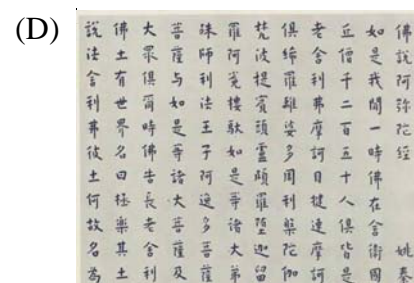 (D)
佛說阿弥陀經 姚秦
如是我聞一時佛在舍衛國
丘僧千二百五十人俱皆是
老舍利弗摩訶目揵連摩訶
俱絺羅離婆多周利槃陀伽
梵波提賓頭盧頗羅墮迦留
羅阿㝹樓馱如是等諸大弟
殊師利法王子阿逸多菩薩
菩薩与如是等諸大菩薩及
大眾俱爾時佛告長老舍利
佛土有世界名曰極樂其土
說法舍利弗彼土何故名為